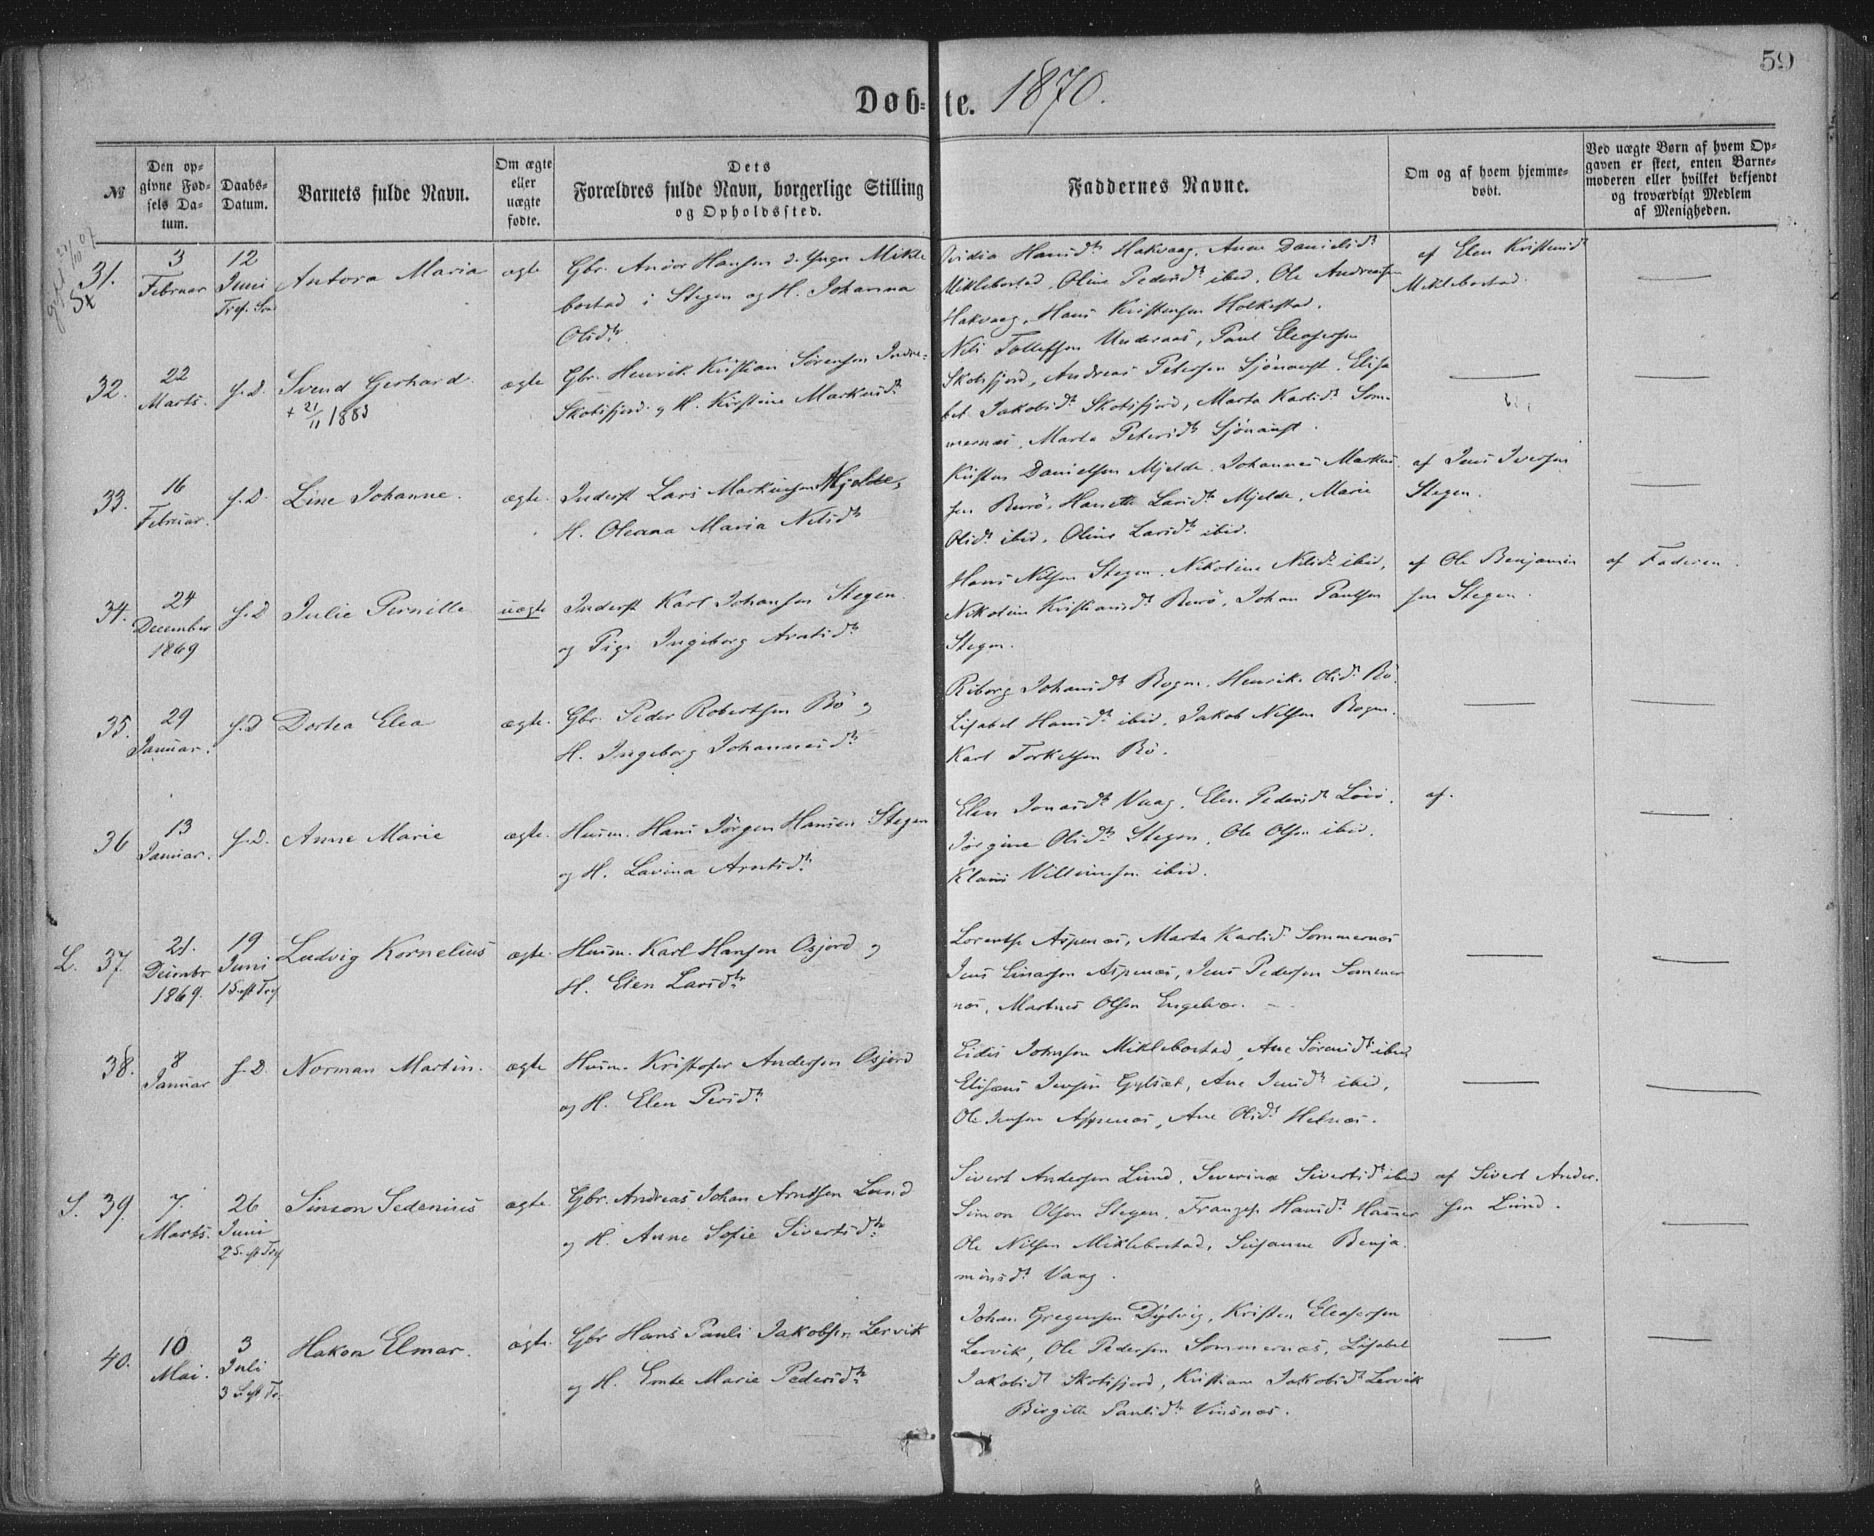 59
Døbte. 1870.
№
Den opgivne Fødsels Datum.
Daabs-Datum.
Barnets fulde Navn.
Om ægte eller uægte fødte.
Dets Forældres fulde Navn, borgerlige Stilling og Opholdssted.
Faddernes Navne.
Om og af hvem hjemmedøbt.
Ved uægte Børn af hvem Opgaven er skeet, enten Barnemoderen eller hvilket bekjendt og troværdigt Medlem af Menigheden.
31. 3 Februar 12 Juni Tref. Antora Maria ægte
Gbr. Andor Hansen d. Yngr Mikle
bostad i Stegen og H. Johanna
Olsdtr.
Hansdtr Hakvaag, Anne Danielsdtr
Miklebostad, Oline Pedersdtr ibid, Ole Andreassen
Hakvaag, Hans Kristensen Holkestad.
af Elen Kristensdtr
Miklebostad.
32. 22 Marts. s.D. Svend Gerhard. ægte
+ 21/11 1883
Gbr. Henrik Kristian Sørensen Indre-
Skotsfjord. og H. Kirstine Markusdtr
Nils Tollefsen Underaas, Paul Eleasersen
Skotsfjord, Andreas Petersen Sjönangst. Elisa
bet Jakobsdtr Skotsfjord, Marta Karlsdtr Som-
mernæs, Marta Petersdtr Sjönangst.
33. 16 Februar. s.D. Line Johanne. ægte.
Inderst Lars Markussen Mjelde,
H. Oleana Maria Nilsdtr
Kristen Danielsen Mjelde. Johannes Markus
sen Burö. Hansette Larsdtr Mjelde, Marie
Olsdtr ibid. Oline Larsdtr ibid.
af Jens Iversen
Stegen.
34. 24 December 1869 s.D Julie Pernille uægte
Inderst Karl Johansen Stegen.
og Pige Ingeborg Arntsdtr
Hans Nilsen Stegen. Nikoline Nilsdtr ibid,
Nikoline Kristiansdtr Burö, Johan Paulsen
Stegen.
af Ole Benjamin
sen Stegen.
af Faderen.
35. 29 Januar. s.D Dortea Elea ægte.
Gbr. Peder Robertsen Bö og
H. Ingeborg Johannesdtr
Riborg Johansdtr Bogen. Henrik. Olsdtr Bö.
Lisabel Hansdtr ibid, Jakob Nilsen Bogen.
Karl Torkelsen Bö.
36 13 Januar. s.D. Anne Marie ægte.
Husm. Hans Jörgen Hansen Stegen
og H. Lavina Arntsdtr
Elen Jonasdtr Vaag. Elen Pedersdtr
Jörgine Olsdtr Stegen, Ole Olsen ibid.
Klaus Villumsen ibid.
af.
L. 37. 21. December 1869. 19 Juni 1 S. eft Tref Ludvig Kornelius ægte.
Husm. Karl Hansen Osjord og
H. Elen Larsdtr
Lorentse Aspenæs, Marta Karlsdtr Sommernæs
Jens Einarsen Aspenæs, Jens Pedersen Sommer
næs, Martnes Olsen Engelvær.
38. 8 Januar s.D. Norman Martin. ægte
Husm. Kristofer Andersen Osjord
og H. Elen Persdtr
Eidis Johnsen Miklebostad, Ane Sörensdtr ibid
Elisæus Jensen Gylset, Ane Jensdtr ibid,
Ole Jensen Aspenæs, Ane Olsdtr Helnæs.
S. 39. 7. Marts. 26 Juni 2 S. eft Tref Simon Sedenius ægte.
Gbr. Andreas Johan Arntsen Lund
og H. Anne Sofie Sivertsdtr
Sivert Andersen Lund, Severina Sivertsdtr ibid
Simon Olsen Stegen. Hansdtr Hamner
Ole Nilsen Miklebostad, Susanne Benja
minsdtr Vaag.
af Sivert Ander.
sen Lund.
40. 10 Mai. 3 Juli 3 S. eft Tr. Hakon Elmar. ægte
Gbr Hans Pauli Jakobsen Lervik
og H. Marie Pedersdtr
Johan Gregersen Dypvig, Kristen Eleasersen
Lervik, Ole Pedersen Sommernæs, Lisabel
Jakobsdtr Skotsfjord, Kristiane Jakobsdtr Lervik
Birgitte Paulsdtr Vinsnæs.